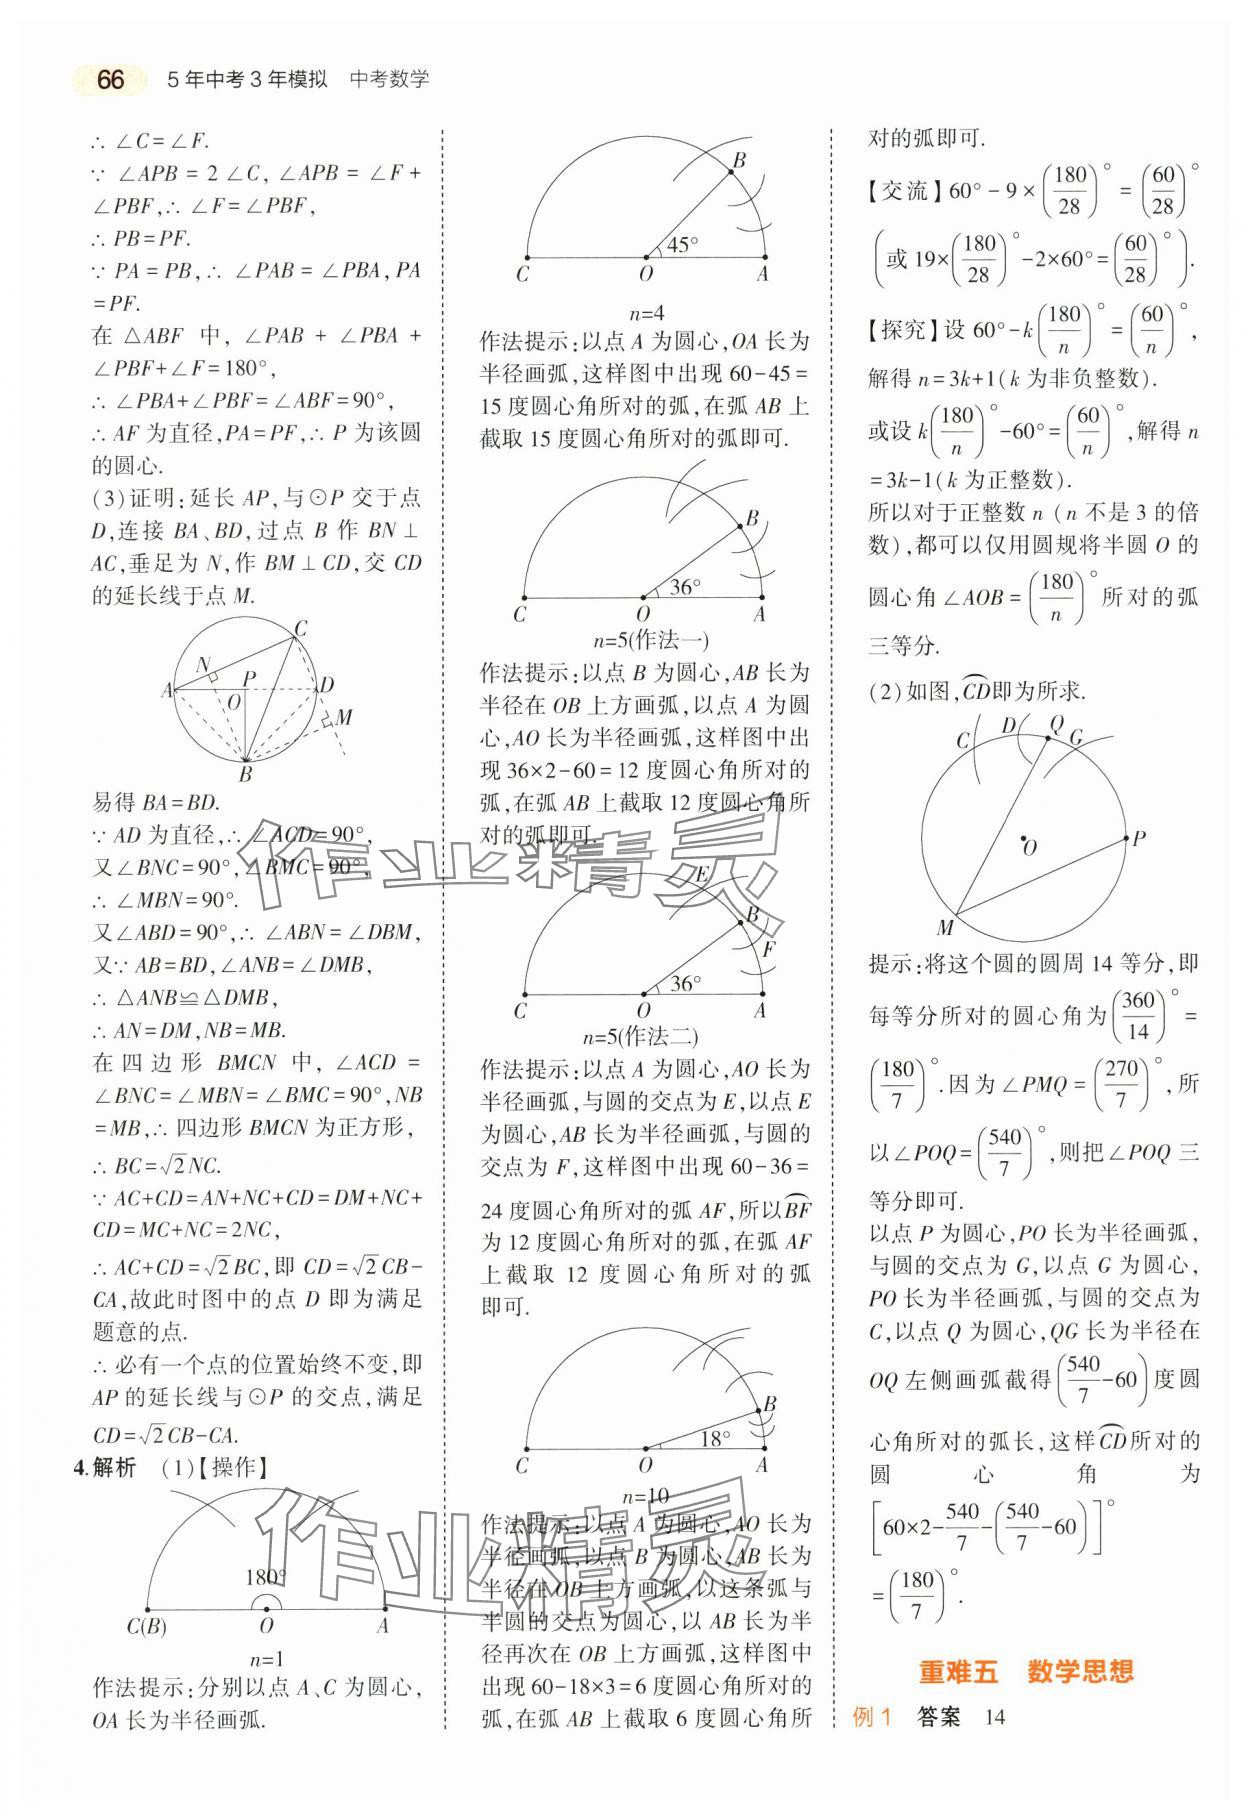 66 5年中考3年模拟 中考数学
∴ ∠C=∠F.
∵ ∠APB = 2∠C, ∠APB = ∠F +
∠PBF,∴ ∠F=∠PBF,
∴ PB=PF.
∵ PA=PB,∴ ∠PAB=∠PBA,PA
=PF.
在△ABF 中, ∠PAB + ∠PBA +
∠PBF+∠F=180°,
∴ ∠PBA+∠PBF=∠ABF=90°,
∴ AF 为直径,PA=PF,∴ P 为该圆
的圆心.
(3)证明:延长 AP,与⊙P 交于点
D,连接 BA、BD,过点 B 作 BN⊥
AC,垂足为 N,作 BM⊥CD,交 CD
的延长线于点 M.
C
N
P
A
O
D
M
B
易得 BA=BD.
∵ AD 为直径,∴ ∠ACD=90°,
又∠BNC=90°,∠BMC=90°,
∴ ∠MBN=90°.
又∠ABD=90°,∴ ∠ABN=∠DBM,
又∵ AB=BD,∠ANB=∠DMB,
∴ △ANB≌△DMB,
∴ AN=DM,NB=MB.
在四边形 BMCN 中, ∠ACD =
∠BNC=∠MBN=∠BMC=90°,NB
=MB,∴ 四边形 BMCN 为正方形,
∴ BC=√2NC.
∵ AC+CD=AN+NC+CD=DM+NC+
CD=MC+NC=2NC,
∴ AC+CD=√2BC,即 CD=√2CB-
CA,故此时图中的点 D 即为满足
题意的点.
∴ 必有一个点的位置始终不变,即
AP 的延长线与⊙P 的交点,满足
CD=√2CB-CA.
4.解析 (1)【操作】
180°
C(B) O A
n=1
作法提示:分别以点 A、C 为圆心,
OA 长为半径画弧.
B
45°
C O A
n=4
作法提示:以点 A 为圆心,OA 长为
半径画弧,这样图中出现 60-45=
15 度圆心角所对的弧,在弧 AB 上
截取 15 度圆心角所对的弧即可.
B
36°
C O A
n=5(作法一)
作法提示:以点 B 为圆心,AB 长为
半径在 OB 上方画弧,以点 A 为圆
心,AO 长为半径画弧,这样图中出
现 36×2-60=12 度圆心角所对的
弧,在弧 AB 上截取 12 度圆心角所
对的弧即可.
E
B
F
36°
C O A
n=5(作法二)
作法提示:以点 A 为圆心,AO 长为
半径画弧,与圆的交点为 E,以点 E
为圆心,AB 长为半径画弧,与圆的
交点为 F,这样图中出现 60-36=
24 度圆心角所对的弧 AF,所以⌒BF
为 12 度圆心角所对的弧,在弧 AF
上截取 12 度圆心角所对的弧
即可.
B
18°
C O A
n=10
作法提示:以点 A 为圆心,AO 长为
半径画弧,以点 B 为圆心,AB 长为
半径在 OB 上方画弧,以这条弧与
半圆的交点为圆心,以 AB 长为半
径再次在 OB 上方画弧,这样图中
出现 60-18×3=6 度圆心角所对的
弧,在弧 AB 上截取 6 度圆心角所
对的弧即可.
【交流】60°-9×(180/28)°=(60/28)°
(或 19×(180/28)°-2×60°=(60/28)°).
【探究】设 60°-k(180/n)°=(60/n)°,
解得 n=3k+1(k 为非负整数).
或设 k(180/n)°-60°=(60/n)°,解得 n
=3k-1(k 为正整数).
所以对于正整数 n (n 不是 3 的倍
数),都可以仅用圆规将半圆 O 的
圆心角∠AOB=(180/n)°所对的弧
三等分.
(2)如图,⌒CD即为所求.
C D Q G
O P
M
提示:将这个圆的圆周 14 等分,即
每等分所对的圆心角为(360/14)°=
(180/7)°.因为∠PMQ=(270/7)°,所
以∠POQ=(540/7)°,则把∠POQ 三
等分即可.
以点 P 为圆心,PO 长为半径画弧,
与圆的交点为 G,以点 G 为圆心,
PO 长为半径画弧,与圆的交点为
C,以点 Q 为圆心,QG 长为半径在
OQ 左侧画弧截得(540/7-60)度圆
心角所对的弧长,这样⌒CD所对的
圆心角为
[60×2-540/7-(540/7-60)]°
=(180/7)°.
重难五 数学思想
例 1 答案 14
作业精灵
作业精灵